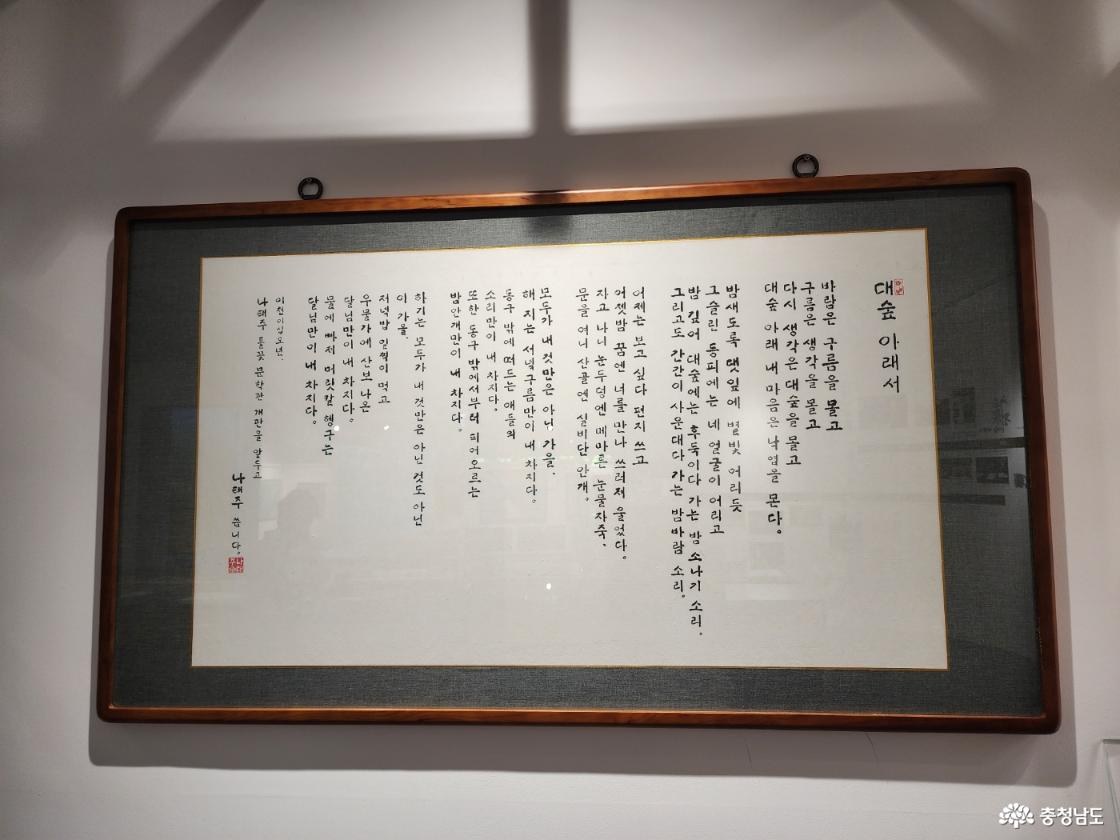 대숲 아래서
바람은 구름을 몰고
구름은 생각을 몰고
다시 생각은 대숲을 몰고
대숲 아래 내 마음은 낙엽을 몬다.
밤새도록 댓잎에 별빛 어리듯
그슬린 등피에는 네 얼굴이 어리고
밤 깊어 대숲에는 후둑이다 가는 밤 소나기 소리.
그리고도 간간이 사운대다 가는 밤바람 소리.
어제는 보고 싶다 편지 쓰고
어젯밤 꿈엔 너를 만나 쓰러져 울었다.
자고 나니 눈두덩엔 메마른 눈물자죽,
문을 여니 산골엔 실비단 안개.
모두가 내 것만은 아닌 가을,
해 지는 서녘구름만이 내 차지다.
동구 밖에 떠드는 애들의
소리만이 내 차지다.
또한 동구 밖에서부터 피어오르는
밤안개만이 내 차지다.
하기는 모두가 내 것만은 아닌 것도 아닌
이 가을,
저녁밥 일찍이 먹고
우물가에 산보 나온
달님만이 내 차지다.
물에 빠져 머릿칼 헹구는
달님만이 내 차지다.
이천이십오년,
나태주 풀꽃 문학관 개관을 앞두고
나태주 씁니다.
충청남도